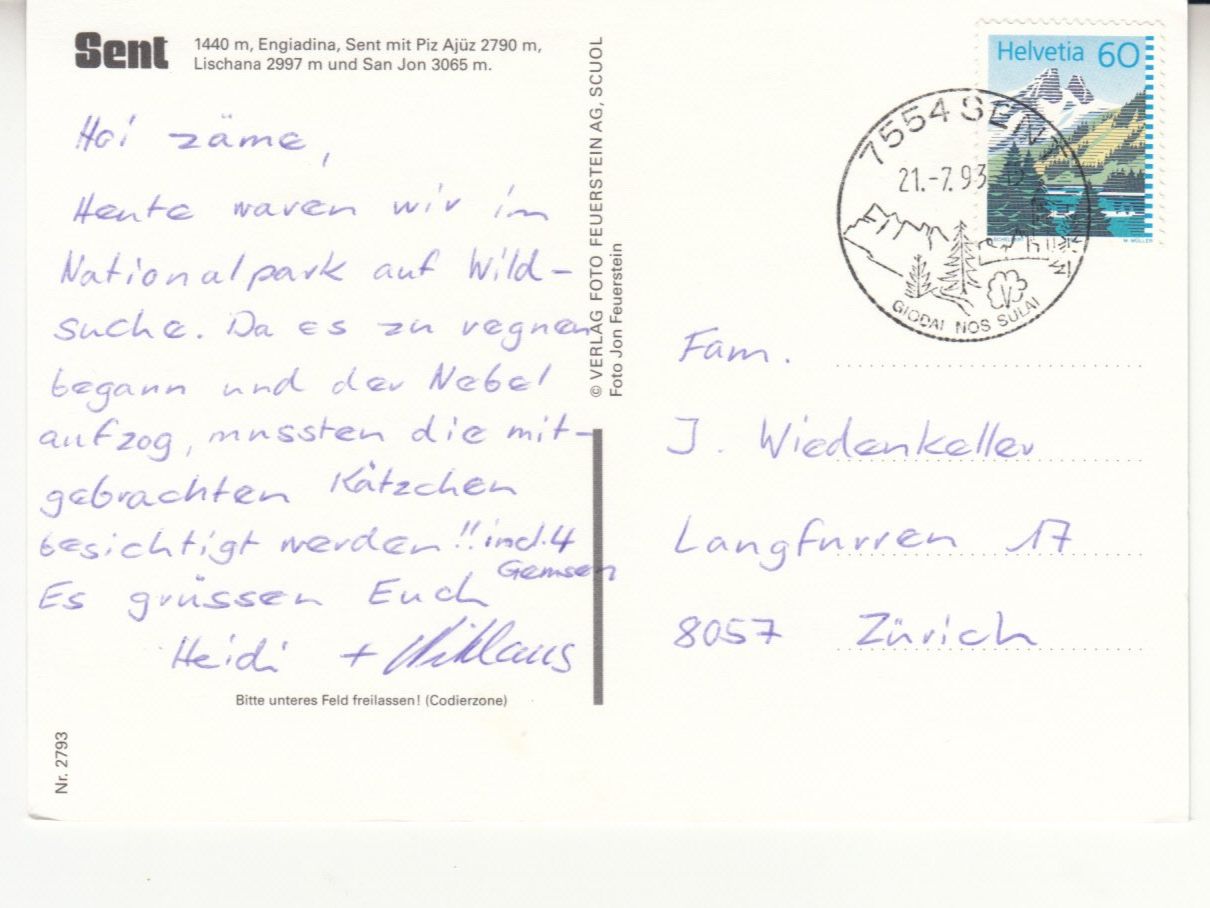 Sent
1440 m, Engiadina, Sent mit Piz Ajüz 2790 m,
Lischana 2997 m und San Jon 3065 m.
Hoi zäme,
Heute waren wir im
Nationalpark auf Wild-
suche. Da es zu regnen
begann und der Nebel
aufzog, mussten die mit-
gebrachten Kätzchen
besichtigt werden!! incl. 4
Gemsen
Es grüssen Euch
Heidi + Niklaus
Bitte unteres Feld freilassen! (Codierzone)
Nr. 2793
© VERLAG FOTO FEUERSTEIN AG, SCUOL
Foto Jon Feuerstein
Helvetia 60
M. MÜLLER
7554 SENT
21.-7.93
GIODAI NOS SULAI
Fam.
J. Wiedenkeller
Langfurren 17
8057 Zürich